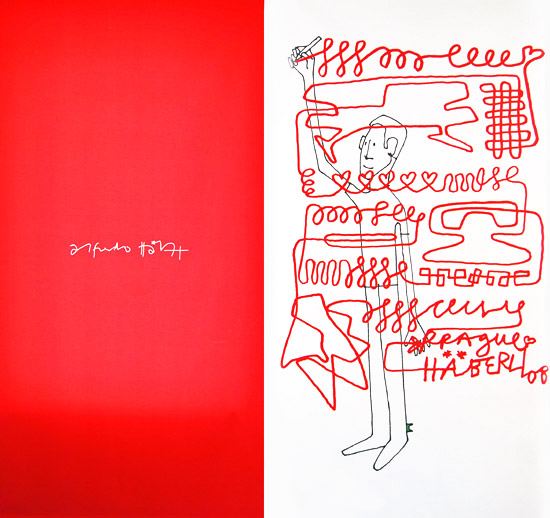 alfredo Häberli
PRAGUE
HÄBERLI 08